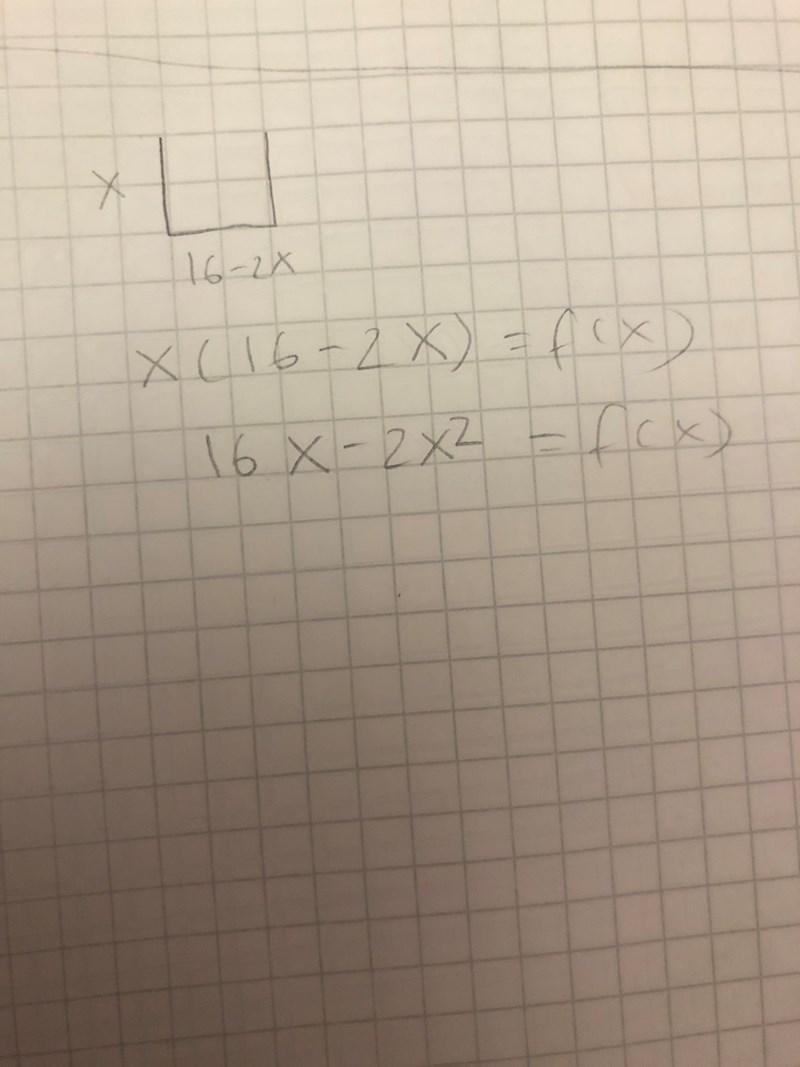 x
16-2x
x(16-2x) = f(x)
16x-2x² = f(x)